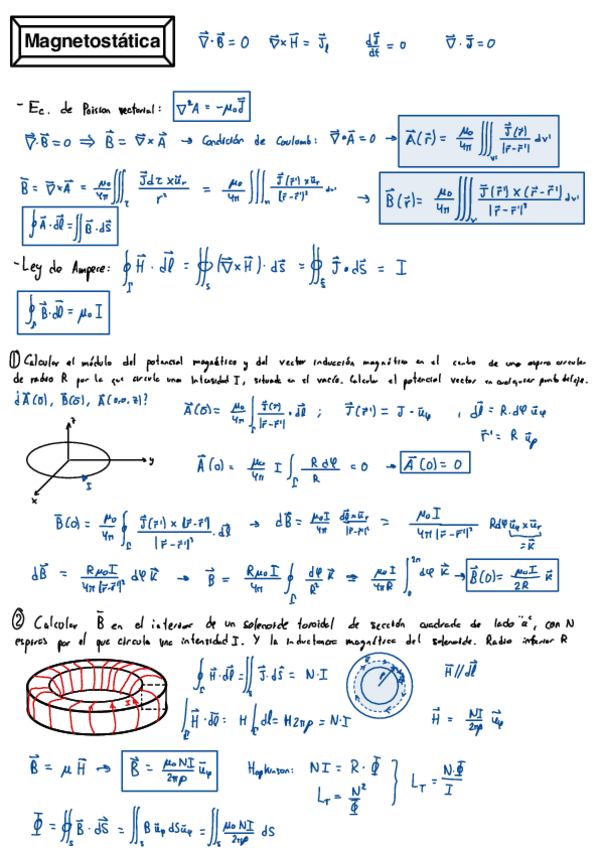 Magnetostática ∇⃗·B⃗ = 0 ∇⃗×H⃗ = J⃗ₗ dJ⃗/dt = 0 ∇⃗·J⃗ = 0
- Ec. de Poisson vectorial: ∇²A = -μ₀J⃗
∇⃗·B⃗ = 0 ⇒ B⃗ = ∇⃗×A⃗ → Condición de Coulomb: ∇⃗·A⃗ = 0 → A⃗(r⃗) = μ₀/4π ∭ᵥ' J⃗(r⃗)/|r⃗-r⃗'| dv'
B⃗ = ∇⃗×A⃗ = μ₀/4π ∭ J⃗dτ×u⃗ᵣ/r² = μ₀/4π ∭ J⃗(r⃗')×u⃗ᵣ/|r⃗-r⃗'|² dv' → B⃗(r⃗) = μ₀/4π ∭ᵥ' J⃗(r⃗')×(r⃗-r⃗')/|r⃗-r⃗'|² dv'
∮A⃗·dl⃗ = ∬B⃗·dS⃗
- Ley de Ampere: ∮H⃗·dl⃗ = ∯ₛ(∇⃗×H⃗)·dS⃗ = ∯ₛ J⃗·dS⃗ = I
∮B⃗·dl⃗ = μ₀I
① Calcular el módulo del potencial magnético y del vector inducción magnética en el centro de una espira circular
de radio R por la que circula una intensidad I, situada en el vacío. Calcular el potencial vector en cualquier punto del eje.
¿A⃗(0), B⃗(0), A⃗(0,0,z)? A⃗(0) = μ₀/4π ∫ J⃗(r⃗)/|r⃗-r⃗'| · dl⃗ ; J⃗(r⃗') = J·u⃗φ , dl⃗ = R·dφ u⃗φ
r⃗' = R u⃗ρ
z
y
x
I
A⃗(0) = μ₀/4π I ∫ R dφ/R = 0 → A⃗(0) = 0
B⃗(0) = μ₀/4π ∮ J⃗(r⃗')×|r⃗-r⃗'|/|r⃗-r⃗'|² · dl⃗ → dB⃗ = μ₀I/4π dl⃗×u⃗ᵣ/|r⃗-r⃗'|² = μ₀I/4π|r⃗-r⃗'|² Rdφ u⃗φ×u⃗ᵣ
=k⃗
dB⃗ = Rμ₀I/4π|r⃗-r⃗'|² dφ k⃗ → B⃗ = Rμ₀I/4π ∮ dφ/R² k⃗ = μ₀I/4πR ∫₀²π dφ k⃗ → B⃗(0) = μ₀I/2R k⃗
② Calcular B⃗ en el interior de un solenoide toroidal de sección cuadrada de lado "a", con N
espiras por el que circula una intensidad I. Y la inductancia magnética del solenoide. Radio inferior R
∮H⃗·dl⃗ = ∬J⃗·dS⃗ = N·I
H⃗ // dl⃗
ρ
I
∫H⃗·dl⃗ = H∫dl = H2πρ = N·I
H⃗ = NI/2πρ u⃗φ
B⃗ = μH⃗ → B⃗ = μ₀NI/2πρ u⃗φ Hopkinson: NI = R·Φ } Lᴛ = N·Φ/I
Lᴛ = N²/Φ
Φ⃗ = ∯ₛ B⃗·dS⃗ = ∬ₛ B u⃗φ dS u⃗φ = ∬ₛ μ₀NI/2πρ dS